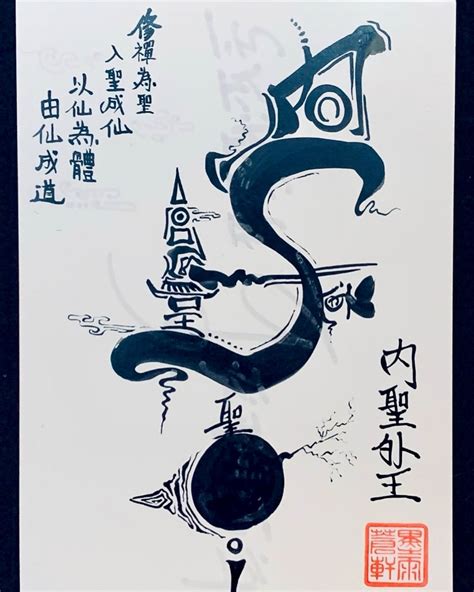 修禪為聖
入聖成仙
以仙為體
由仙成道
聖
内聖外王